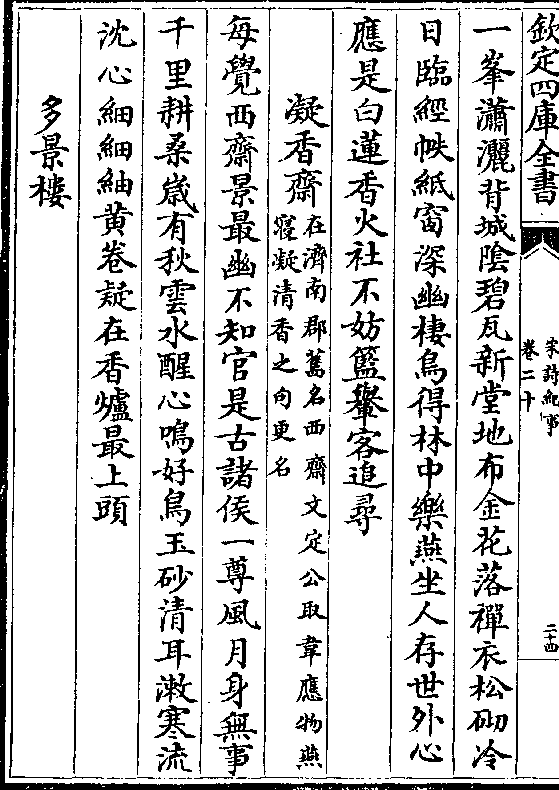 欽定四庫全書
宋詩紀事
卷二十
二十四
一峯瀟灑背城陰碧瓦新堂地布金花落禪衣松砌冷
日臨經帙紙窗深幽棲鳥得林中樂燕坐人存世外心
應是白蓮香火社不妨籃轝客追尋
凝香齋
在濟南郡舊名西齋文定公取韋應物燕
寢凝清香之句更名
每覺西齋景最幽不知官是古諸侯一尊風月身無事
千里耕桑嵗有秋雲水醒心鳴好鳥玉砂清耳漱寒流
沈心細細紬黄卷疑在香爐最上頭
多景樓